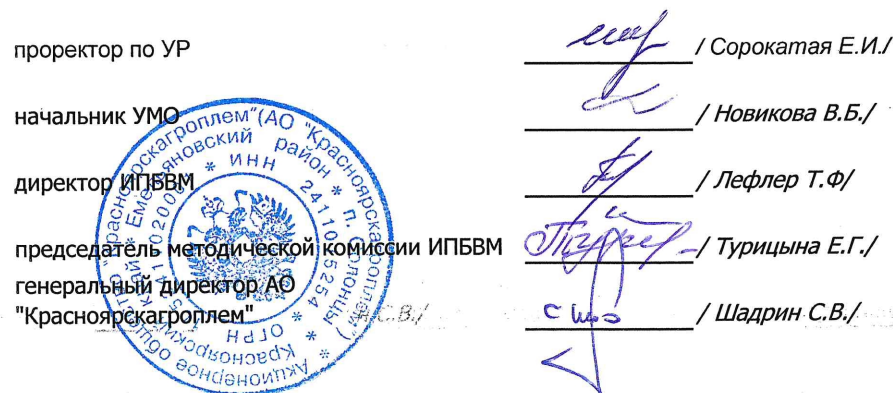 проректор по УР / Сорокатая Е.И./
начальник УМО / Новикова В.Б./
директор ИПБВМ / Лефлер Т.Ф/
председатель методической комиссии ИПБВМ / Турицына Е.Г./
генеральный директор АО
"Красноярскагроплем" / Шадрин С.В./
Акционерное общество "Красноярскагроплем" (АО "Красноярскагроплем") *
Емельяновский район * п. Солонцы *
* ИНН 2411025254 * ОГРН